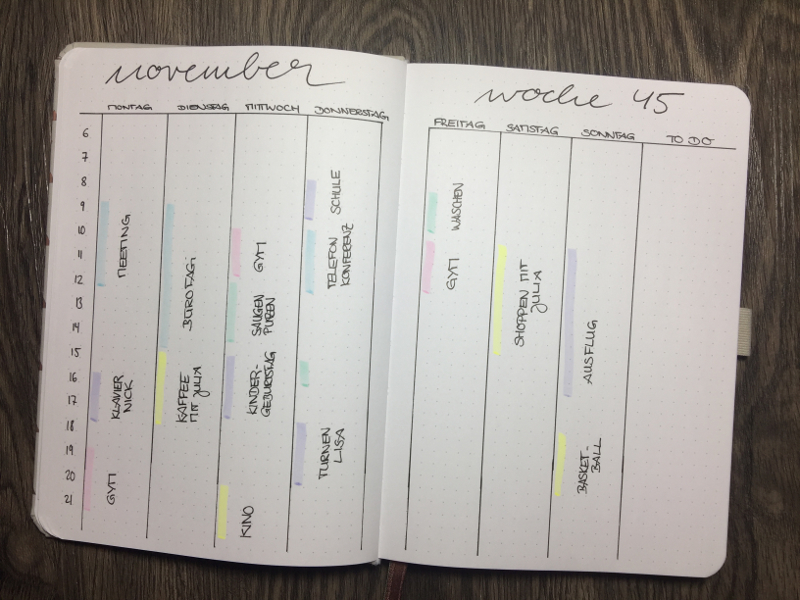 november
MONTAG DIENSTAG MITTWOCH DONNERSTAG
6
7
8
9
10
11
12
13
14
15
16
17
18
19
20
21
MEETING
KLAVIER
NICK
GYM
BÜROTAG
KAFFEE
MIT JULIA
GYM
SAUGEN
PUTZEN
KINDER-
GEBURTSTAG
KINO
SCHULE
TELEFON
KONFERENZ
TURNEN
LISA
woche 45
FREITAG SAMSTAG SONNTAG TO DO
WASCHEN
GYM
SHOPPEN MIT
JULIA
AUSFLUG
BASKET-
BALL